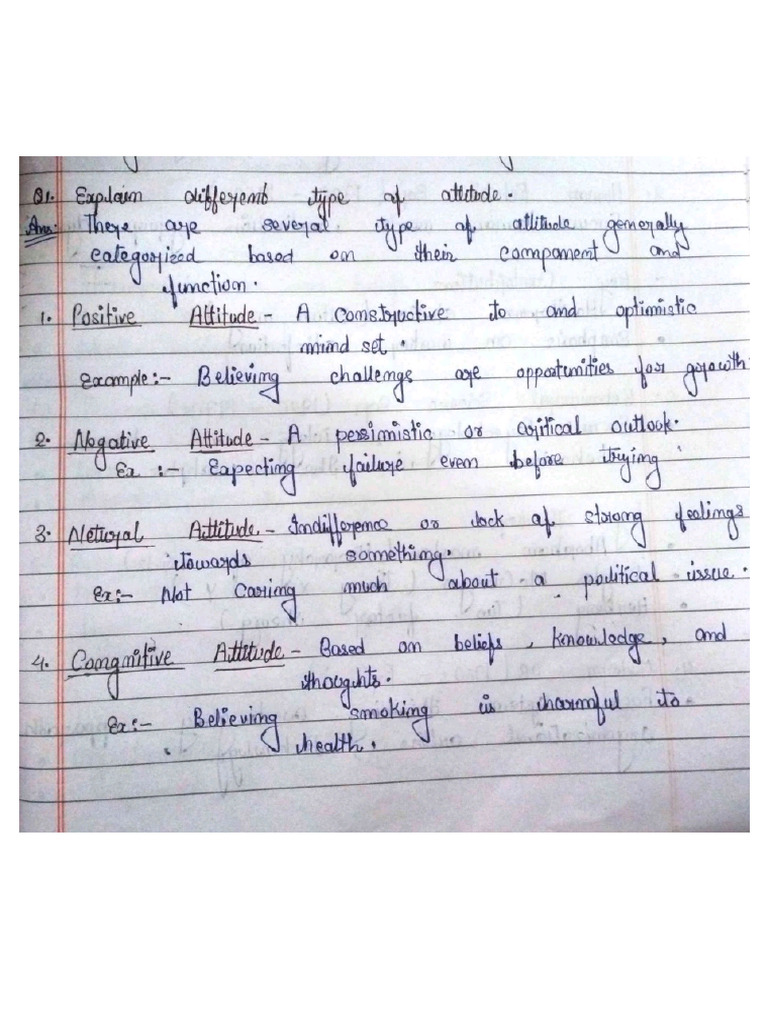 Q1. Explain different type of attitude.
Ans: There are several type of attitude generally
categorized based on their component and
function.
1. Positive Attitude - A constructive to and optimistic
mind set.
Example:- Believing challenge are opportunities for growth.
2. Negative Attitude - A pessimistic or critical outlook.
Ex :- Expecting failure even before trying
3. Netural Attitude - Indifference or lack of strong feelings
towards something.
Ex:- Not Caring much about a political issue.
4. Congnitive Attitude - Based on beliefs, knowledge, and
thoughts.
Ex:- Believing smoking is harmful to
health.